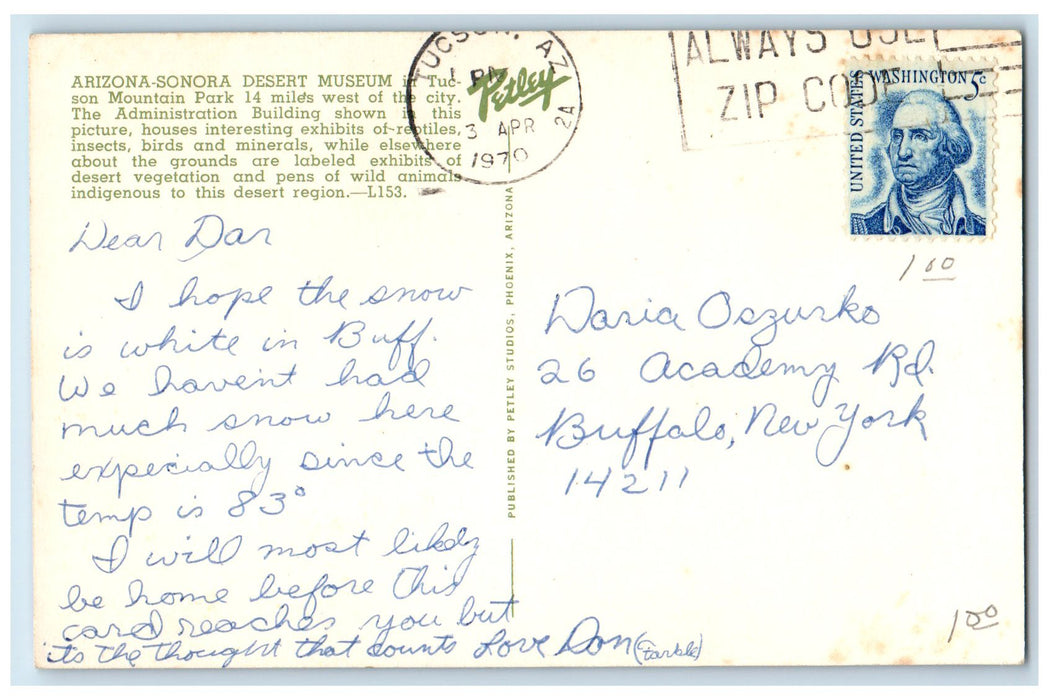 ARIZONA-SONORA DESERT MUSEUM in Tuc-
son Mountain Park 14 miles west of the city.
The Administration Building shown in this
picture, houses interesting exhibits of reptiles,
insects, birds and minerals, while elsewhere
about the grounds are labeled exhibits of
desert vegetation and pens of wild animals
indigenous to this desert region.—L153.
Petley
TUCSON, AZ
1 PM
3 APR
1970
2A
ALWAYS USE
ZIP CODE
UNITED STATES
WASHINGTON 5c
PUBLISHED BY PETLEY STUDIOS, PHOENIX, ARIZONA
Dear Dar
I hope the snow
is white in Buff.
We haven't had
much snow here
expecially since the
temp is 83°
I will most likely
be home before this
card reaches you but
its the thought that counts Love Don
Daria Oszurko
26 Academy Rd.
Buffalo, New York
14211
1 00
1 00